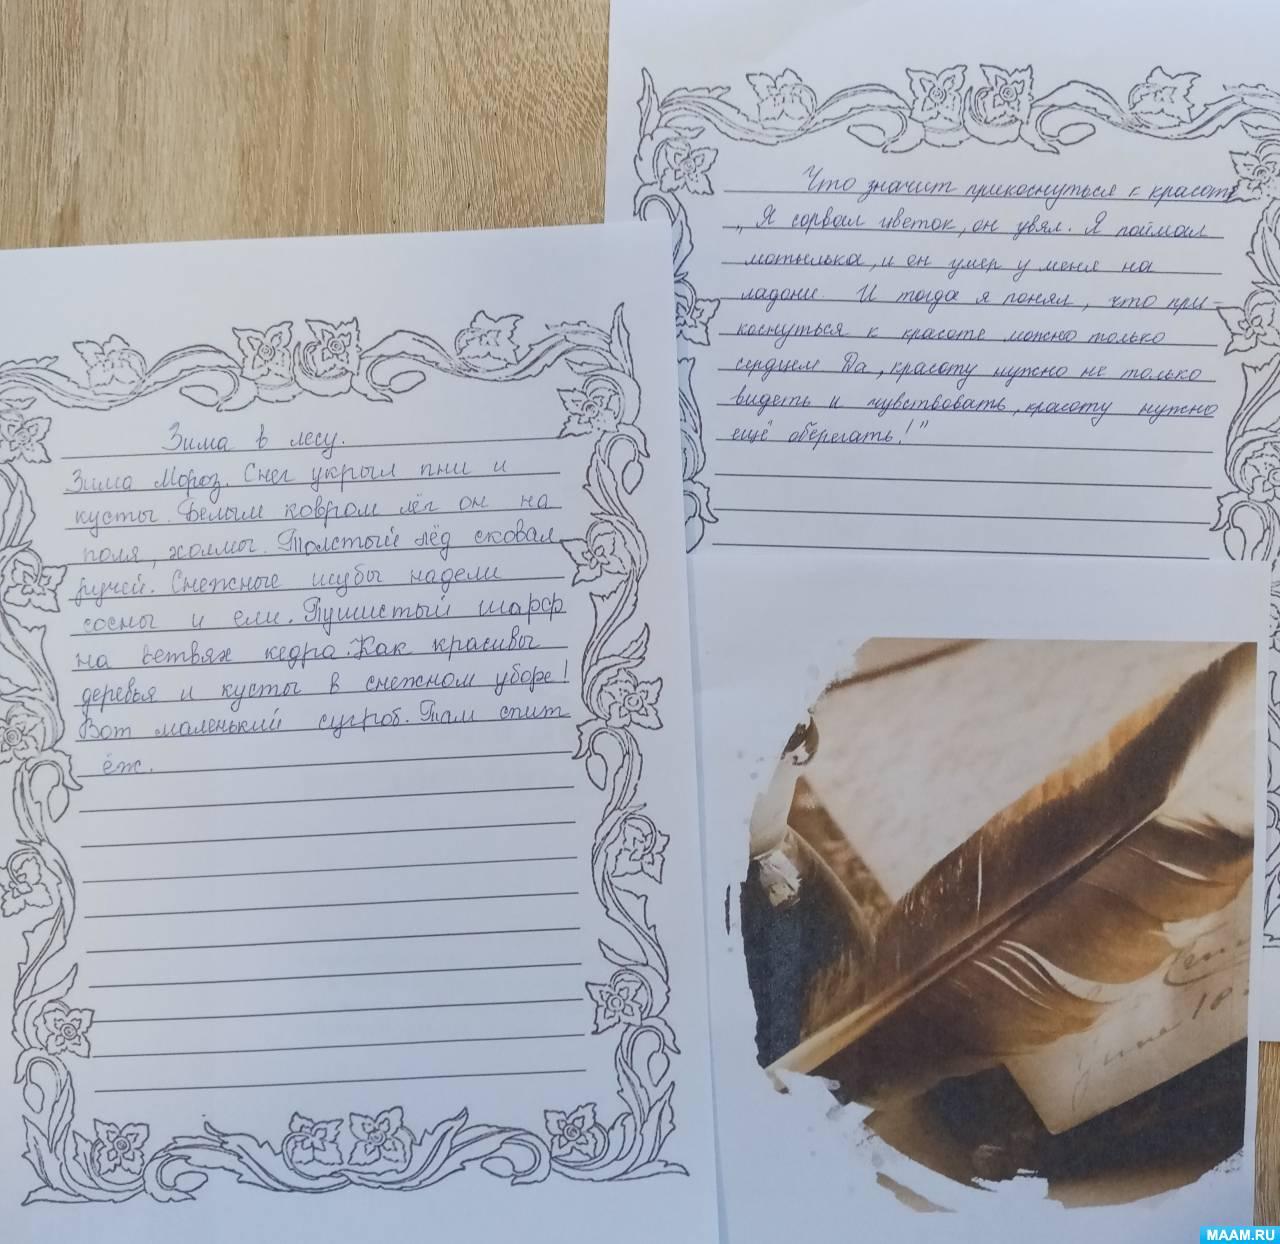 Зима в лесу.
Зима Мороз. Снег укрыл пни и
кусты. Белым ковром лёг он на
поля, холмы. Толстый лёд сковал
ручей. Снежные шубы надели
сосны и ели. Пушистый шарф
на ветвях кедра. Как красивы
деревья и кусты в снежном уборе!
Вот маленький сугроб. Там спит
ёж.
Что значит прикоснуться к красоте
„Я сорвал цветок, он увял. Я поймал
мотылька, и он умер у меня на
ладони. И тогда я понял, что при-
коснуться к красоте можно только
сердцем Да, красоту нужно не только
видеть и чувствовать, красоту нужно
ещё оберегать!"
MAAM.RU